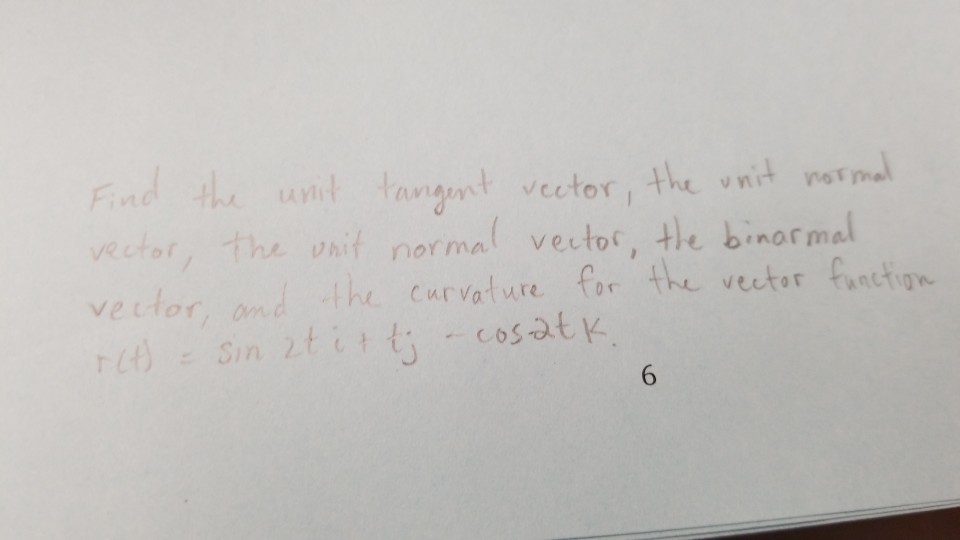 Find the unit tangent vector, the unit normal
vector, the unit normal vector, the binormal
vector, and the curvature for the vector function
r(t) = sin 2t i + tj - cos2t k.
6